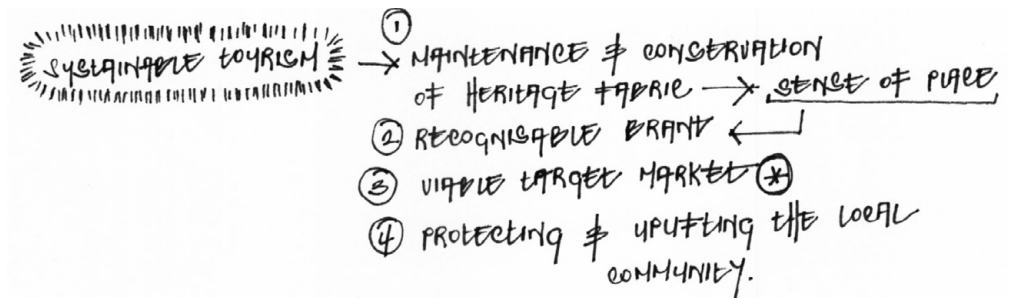 ①
SUSTAINABLE TOURISM → MAINTENANCE & CONSERVATION
OF HERITAGE FABRIC → SENSE OF PLACE
② RECOGNISABLE BRAND ←
③ VIABLE TARGET MARKET *
④ PROTECTING & UPLIFTING THE LOCAL
COMMUNITY.